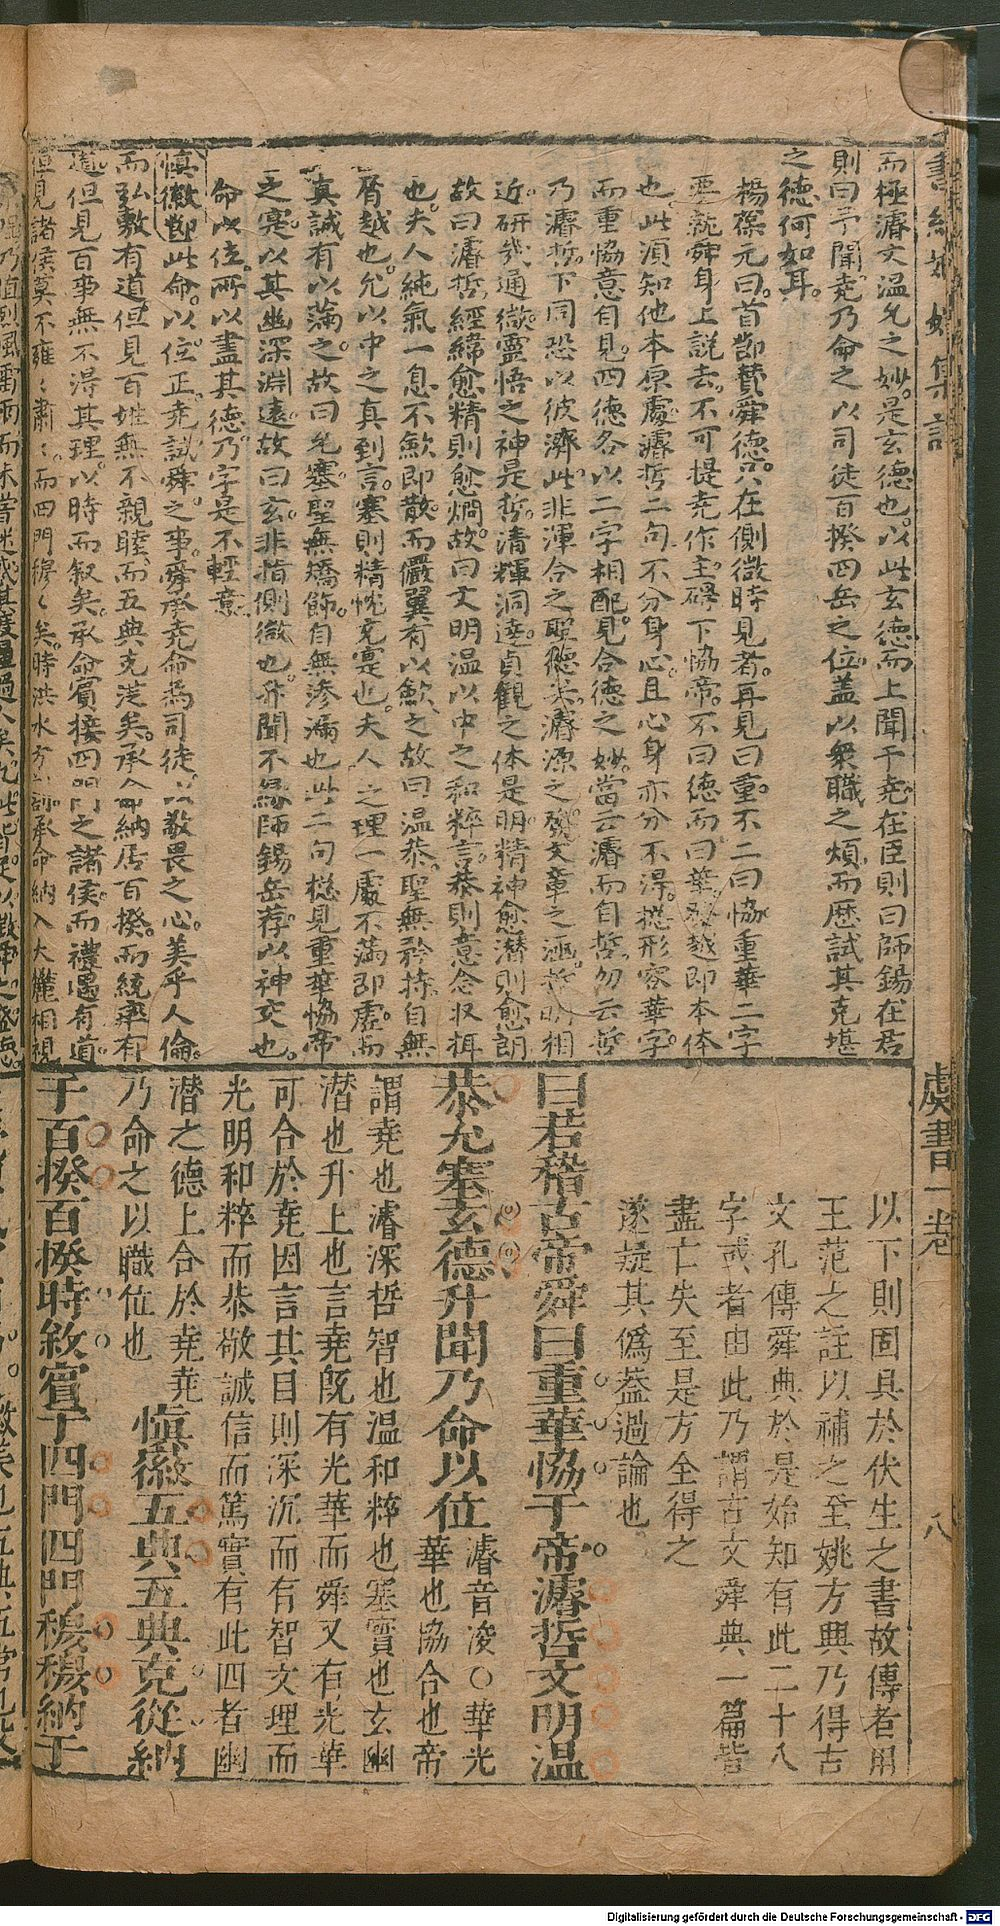 而極濬文溫允之妙是玄德也以此玄德而上聞于堯在臣則曰師錫在君
則曰予聞堯乃命之以司徒百揆四岳之位蓋以眾職之煩而歷試其克堪
之德何如耳
楊葆元曰首節贊舜德只在側微時見者再見曰重不二曰協重華二字
要就舜身上說去不可提堯作主碍下協帝不曰德而曰華發越即本体
也此須知他本原處濬哲二句不分身心且心身亦分不得總形容華字
而重協意自見四德各以二字相配見合德之妙當云濬而自哲勿云哲
乃濬哲下同恐以彼濟此非渾合之聖德矣濬源之發文章之
近研幾通微靈悟之神是哲清輝洞達貞觀之体是明精神愈潛則愈朗
故曰濬哲經緯愈精則愈烱故曰文明溫以中之和粹言恭則意念収揖
也夫人純氣一息不歛即散而儼翼有以歛之故曰溫恭聖無矜持自無
屑越也允以中之真到言塞則精忱充寔也夫人之理一處不滿即虛而
真誠有以滿之故曰允塞聖無矯飾自無滲漏也此二句總見重華協帝
之寔以其幽深淵遠故曰玄非指側微也升聞不緣師錫岳荐以神交也
命以位所以盡其德乃字是不輕意
慎徽節此命以位正堯試舜之事舜承堯命為司徒以敬畏之心美乎人倫
而弘敷有道但見百姓無不親睦而五典克從矣承命納居百揆而統率有
道但見百事無不得其理以時而叙矣承命賓接四門之諸侯而禮遇有道
但見諸侯莫不雍雍肅肅而四門穆穆矣時洪水方割承命納入大麓相視
虞書一卷
八
以下則固具於伏生之書故傳者用
王范之註以補之至姚方興乃得古
文孔傳舜典於是始知有此二十八
字或者由此乃謂古文舜典一篇皆
盡亡失至是方全得之
遂疑其偽蓋過論也
曰若稽古帝舜曰重華協于帝濬哲文明溫
恭允塞玄德升聞乃命以位濬音浚○華光
華也協合也帝
謂堯也濬深哲智也溫和粹也塞實也玄幽
潛也升上也言堯既有光華而舜又有光華
可合於堯因言其目則深沉而有智文理而
光明和粹而恭敬誠信而篤實有此四者幽
潛之德上合於堯堯
乃命之以職位也
慎徽五典五典克從納
于百揆百揆時敘賓于四門四門穆穆納于